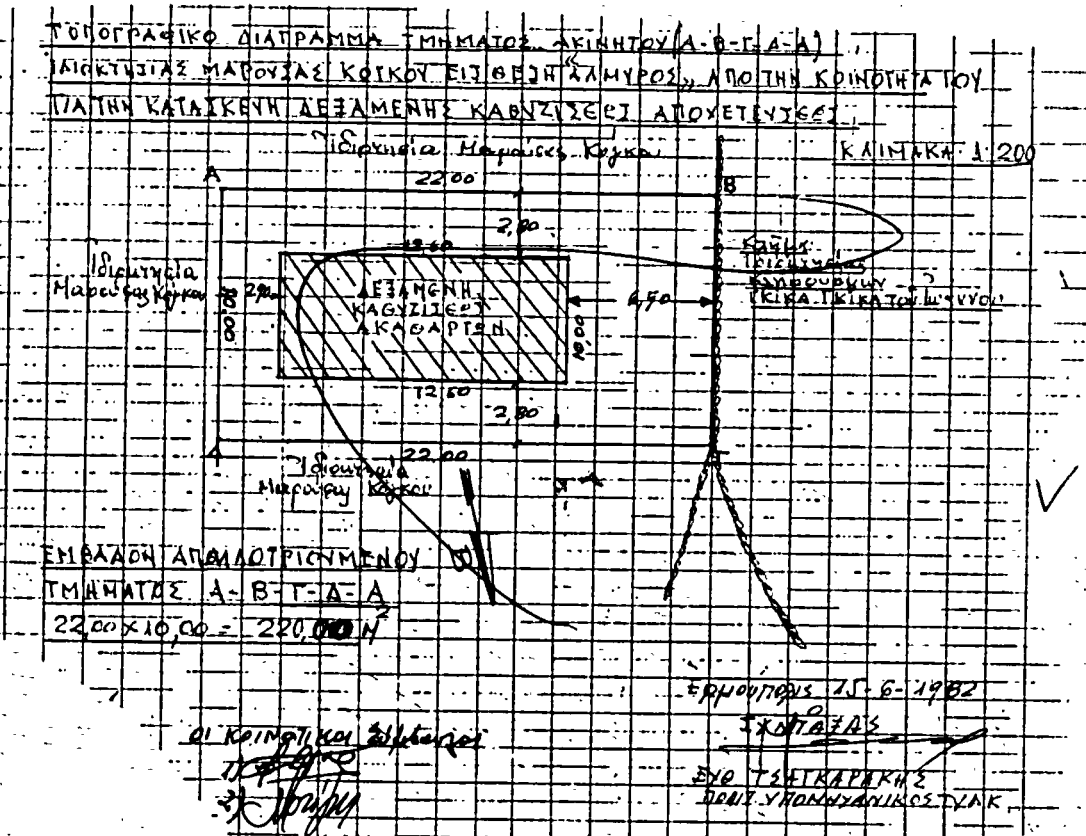 ΤΟΠΟΓΡΑΦΙΚΟ ΔΙΑΓΡΑΜΜΑ ΤΜΗΜΑΤΟΣ ΑΚΙΝΗΤΟΥ (Α-Β-Γ-Δ-Α)
ΙΔΙΟΚΤΗΣΙΑΣ ΜΑΡΟΥΣΑΣ ΚΟΓΚΟΥ ΕΙΣ ΘΕΣΗ "ΑΛΜΥΡΟΣ,, ΑΠΟ ΤΗΝ ΚΟΙΝΟΤΗΤΑ ΤΟΥ
ΓΙΑ ΤΗΝ ΚΑΤΑΣΚΕΥΗ ΔΕΞΑΜΕΝΗΣ ΚΑΘΥΖΙΣΕΩΣ ΑΠΟΧΕΤΕΥΣΕΩΣ
Ἰδιοκτησία Μαρούσας Κόγκου
ΚΛΙΜΑΚΑ 1:200
Α
22.00
Β
2,80
12.60
Ἰδιοκτησία
Μαρούσας Κόγκου
10.00
2,90
ΔΕΞΑΜΕΝΗ
ΚΑΘΥΖΙΣΕΩΣ
ΑΚΑΘΑΡΤΩΝ
10,00
6,50
Κτῆμα
Ἰδιοκτησίας
ΓΚΙΚΑ ΓΚΙΚΑ τοῦ Ἰωάννου
12,60
2,80
Δ
22.00
Γ
Ἰδιοκτησία
Μαρούσας Κόγκου
ΕΜΒΑΔΟΝ ΑΠΑΛΛΟΤΡΙΟΥΜΕΝΟΥ
ΤΜΗΜΑΤΟΣ Α-Β-Γ-Δ-Α
22,00×10,00 = 220,00 Μ²
Ἑρμούπολις 15-6-1982
Ὁ ΣΧΕΔΙΑΣΑΣ
ΟΙ ΚΟΙΝΟΤΙΚΟΙ Σύμβουλοι
1)
2)
ΕΥΘ ΤΣΑΓΚΑΡΑΚΗΣ
ΠΟΛΙΤ. ΥΠΟΜΗΧΑΝΙΚΟΣ ΤΥΔΚ